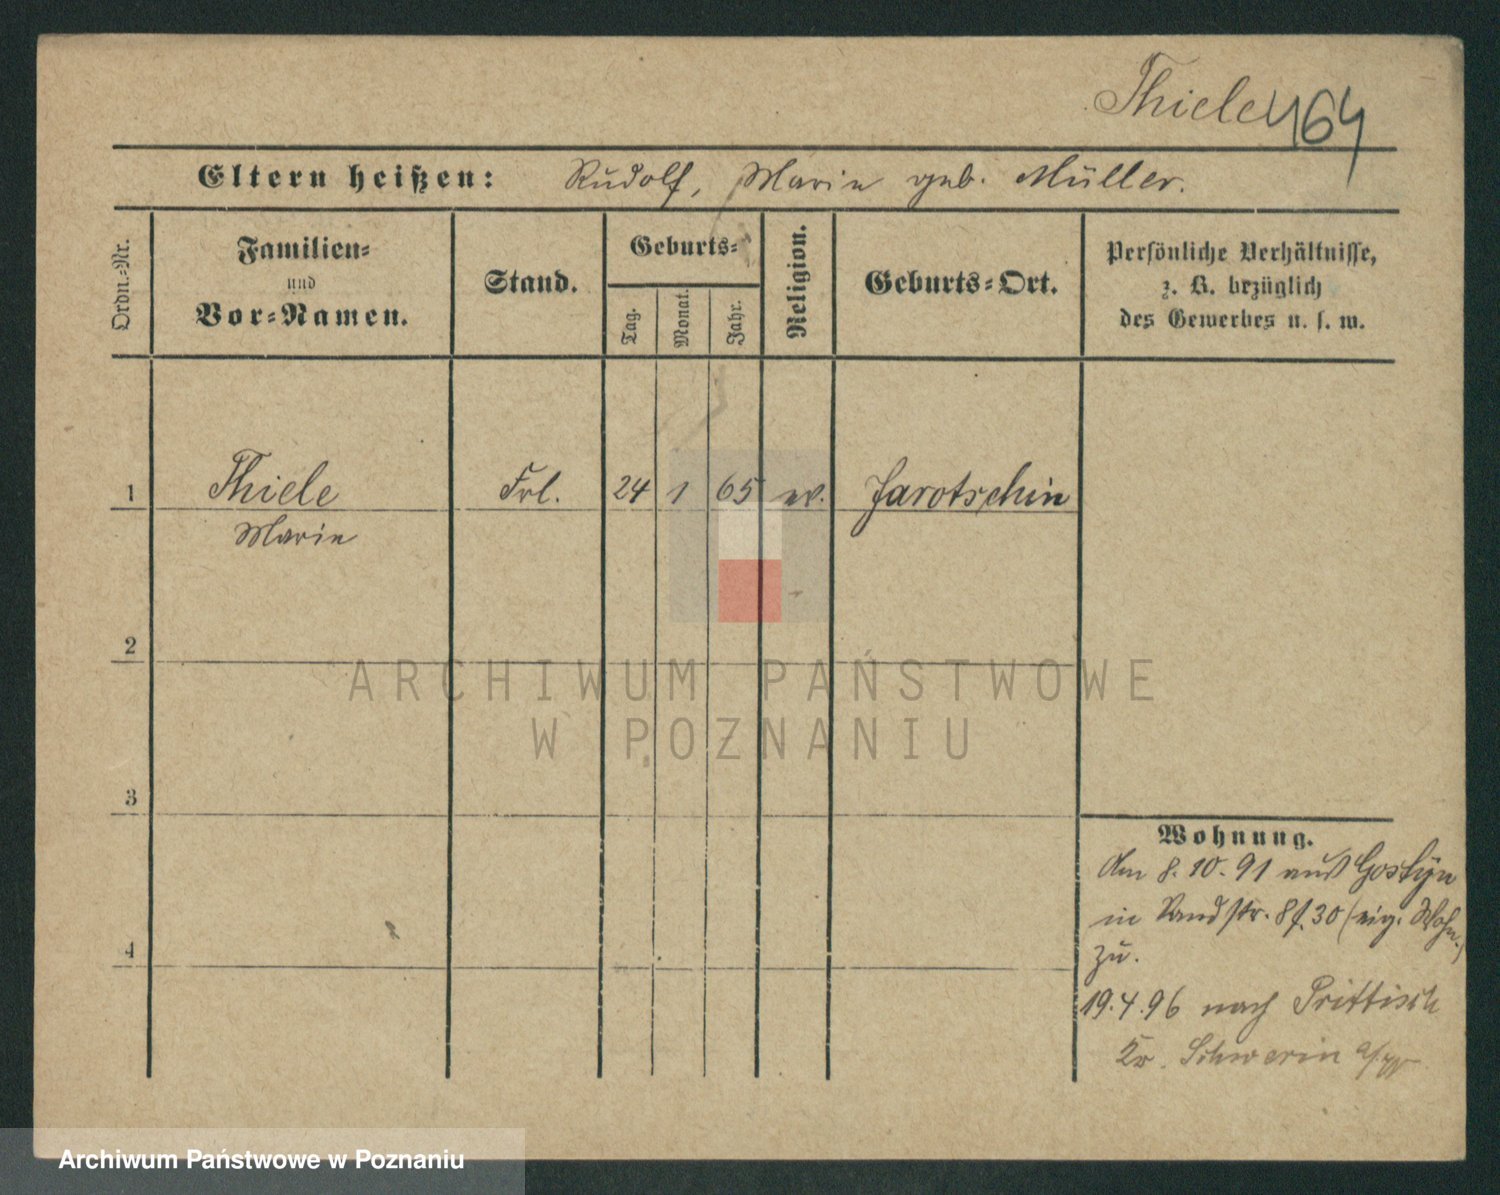 Thiele 464
Eltern heißen: Rudolf, Marie geb. Müller.
Ordn.-Nr.
Familien-
und
Vor-Namen.
Stand.
Geburts-
Tag.
Monat.
Jahr.
Religion.
Geburts-Ort.
Persönliche Verhältnisse,
z. B. bezüglich
des Gewerbes u. s. w.
1 Thiele Frl. 24 1 65 ev. Jarotschin
Marie
2
3
4
Wohnung.
Am 8.10.91 aus Gostÿn
in 30 (eig. Wohn.)
zu.
19.4.96 nach Prittisch
Kr. Schwerin a/W
ARCHIWUM PAŃSTWOWE
W POZNANIU
Archiwum Państwowe w Poznaniu